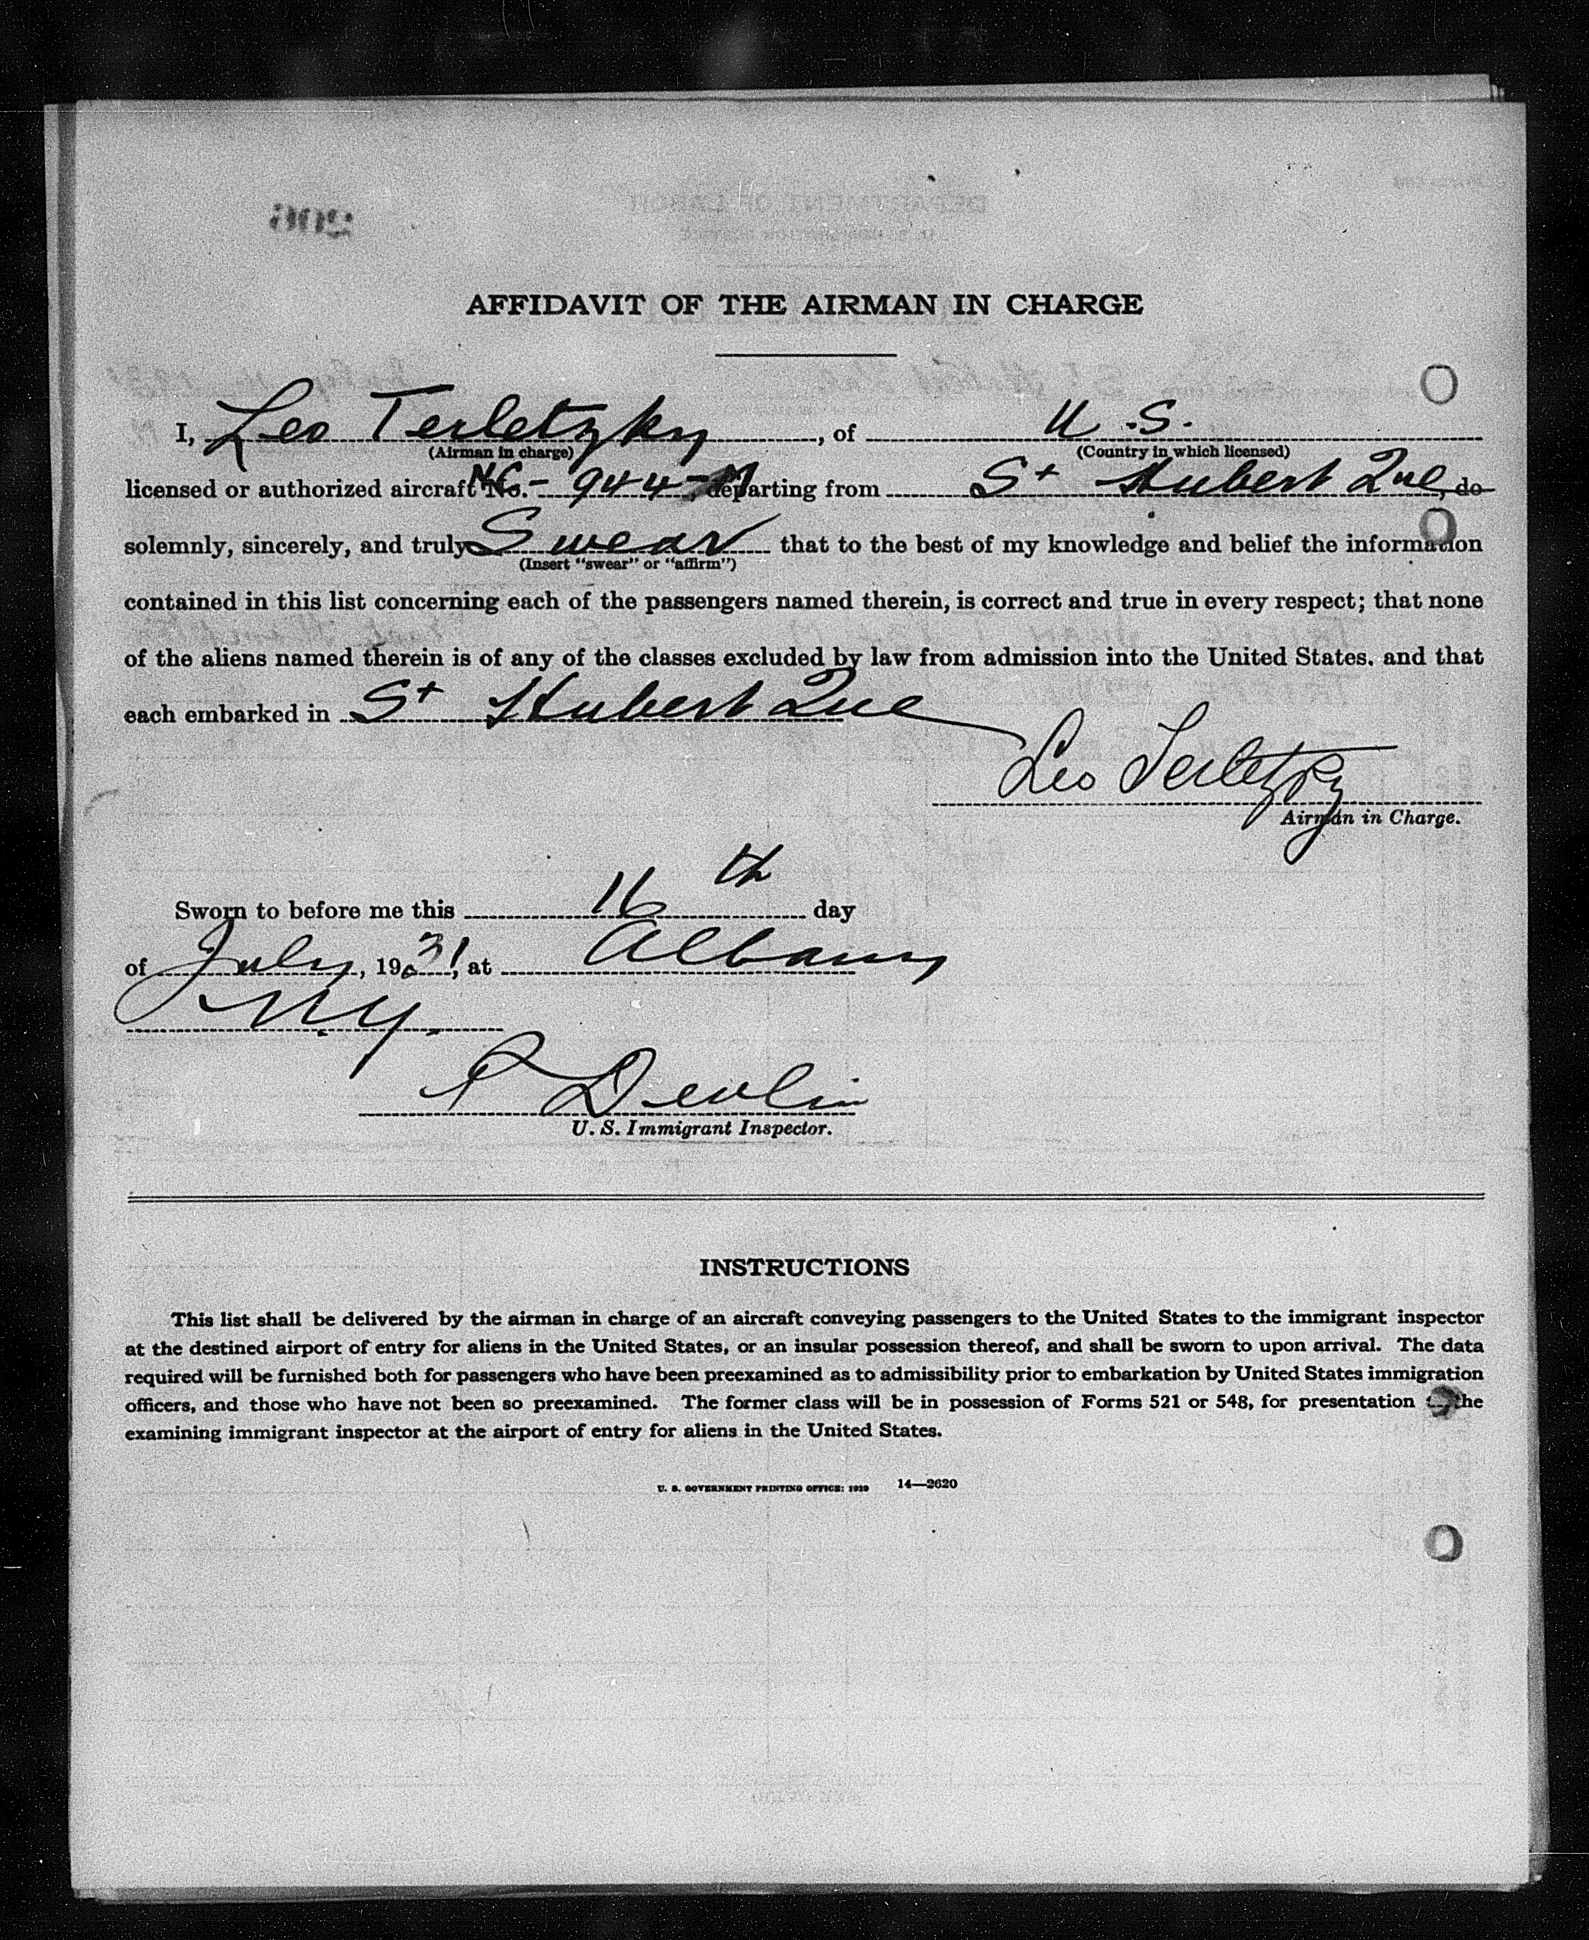 AFFIDAVIT OF THE AIRMAN IN CHARGE
I, Leo Terletzky, of U.S.
(Airman in charge) (Country in which licensed)
licensed or authorized aircraft No. NC- 944-M departing from St Hubert Que, do
solemnly, sincerely, and truly Swear that to the best of my knowledge and belief the information
(Insert "swear" or "affirm")
contained in this list concerning each of the passengers named therein, is correct and true in every respect; that none
of the aliens named therein is of any of the classes excluded by law from admission into the United States, and that
each embarked in St Hubert Que
Leo Terletzky
Airman in Charge.
Sworn to before me this 16th day
of July, 1931, at Albany
N.Y.
P Devlin
U. S. Immigrant Inspector.
INSTRUCTIONS
This list shall be delivered by the airman in charge of an aircraft conveying passengers to the United States to the immigrant inspector
at the destined airport of entry for aliens in the United States, or an insular possession thereof, and shall be sworn to upon arrival. The data
required will be furnished both for passengers who have been preexamined as to admissibility prior to embarkation by United States immigration
officers, and those who have not been so preexamined. The former class will be in possession of Forms 521 or 548, for presentation to the
examining immigrant inspector at the airport of entry for aliens in the United States.
U. S. GOVERNMENT PRINTING OFFICE: 1929 14—2620